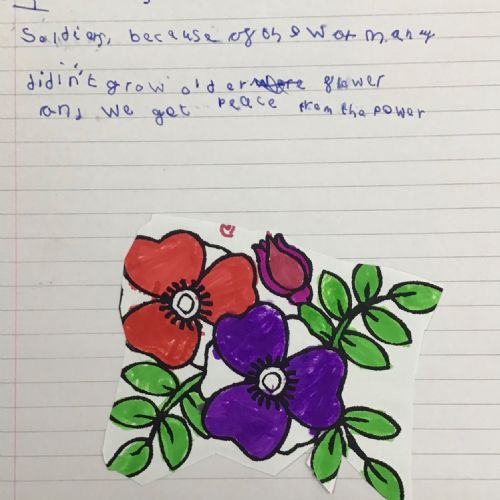 Soldiers, because of the war many
didin't grow older flower
and we get peace from the power